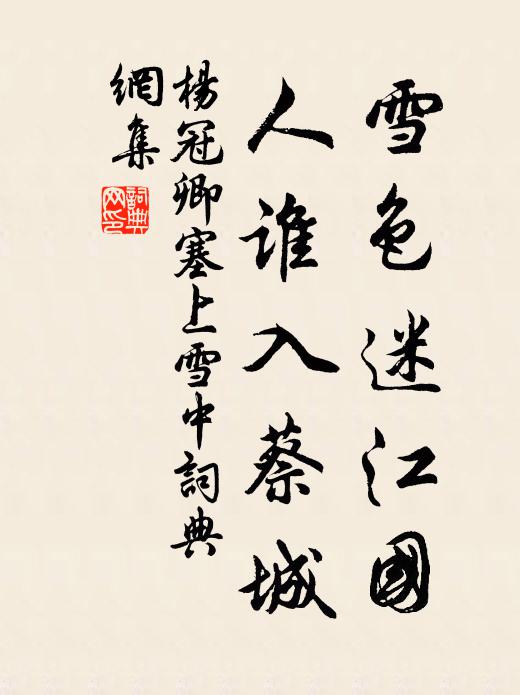 雪色迷江國
人誰入蔡城
楊冠卿塞上雪中詞典
網集
詞典網印